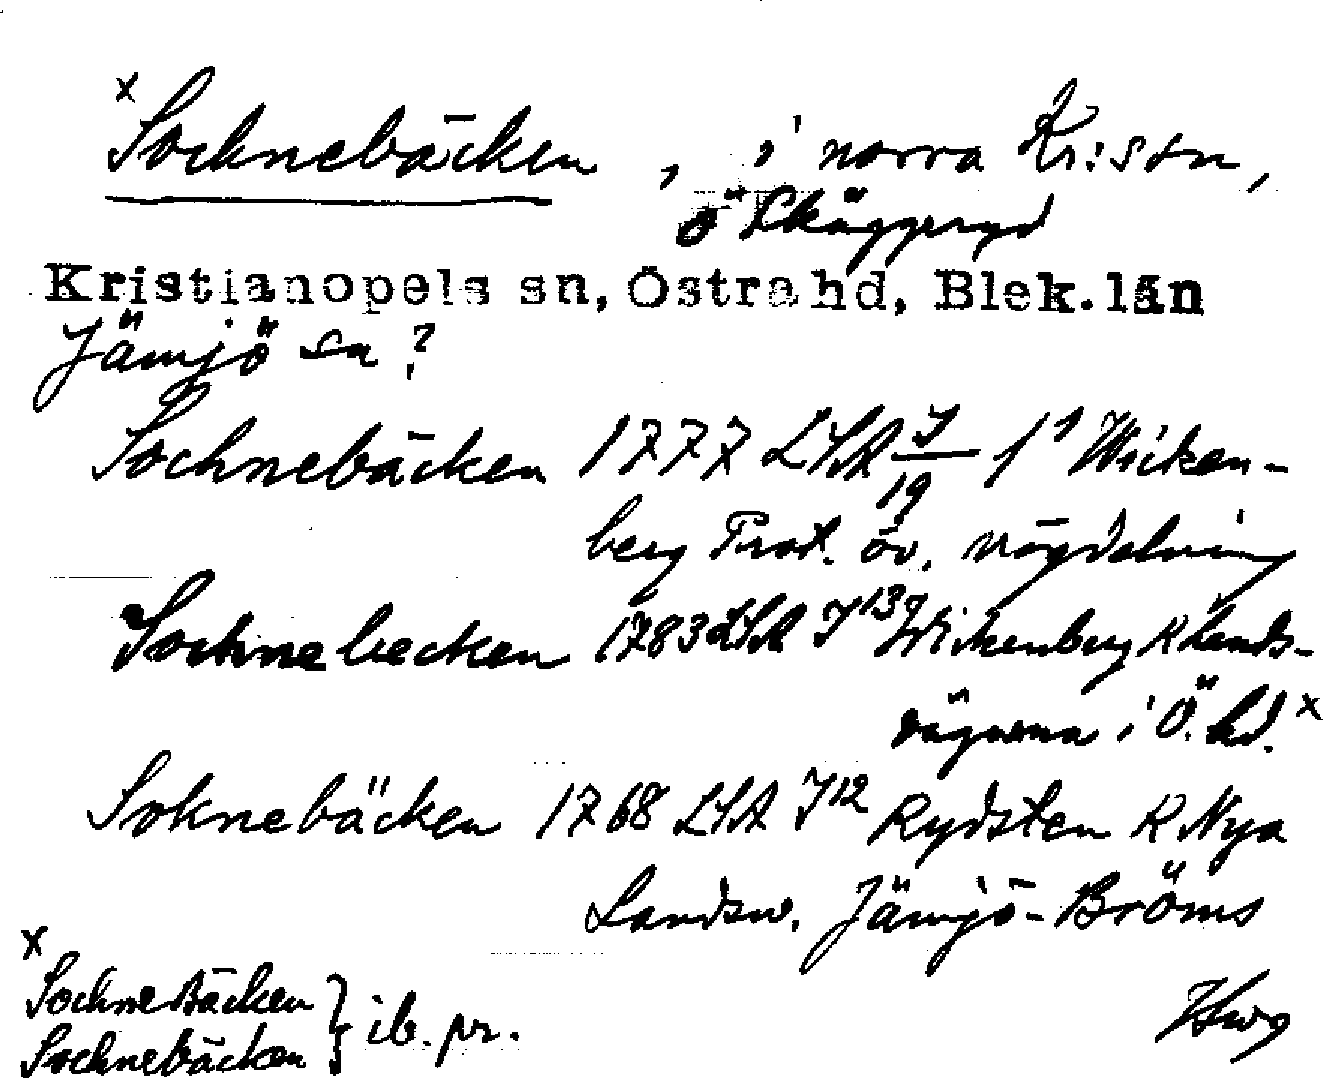 x Sochnebäcken, i norra Kri:s sn,
ö Skäggeryd
Kristianopels sn, Östra hd, Blek. län
Jämjö sn?
Sochnebäcken 1777 LSA J/19 f¹ Wicken-
berg Prot. öv. vägdelning
Sochnebecken 1783 LSA J¹³ Wickenberg K Lands-
vägarna i Ö. hd. x
Soknebäcken 1768 LSA J¹² Rydsten K Nya
Landsw. Jämjö-Bröms
x
SochneBäcken } ib. pr.
Sochnebäcken